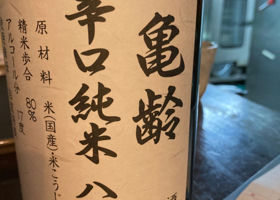 亀齢
辛口純米 八
原材料 米(国産)・米こうじ
精米歩合 80%
アルコール分 17度